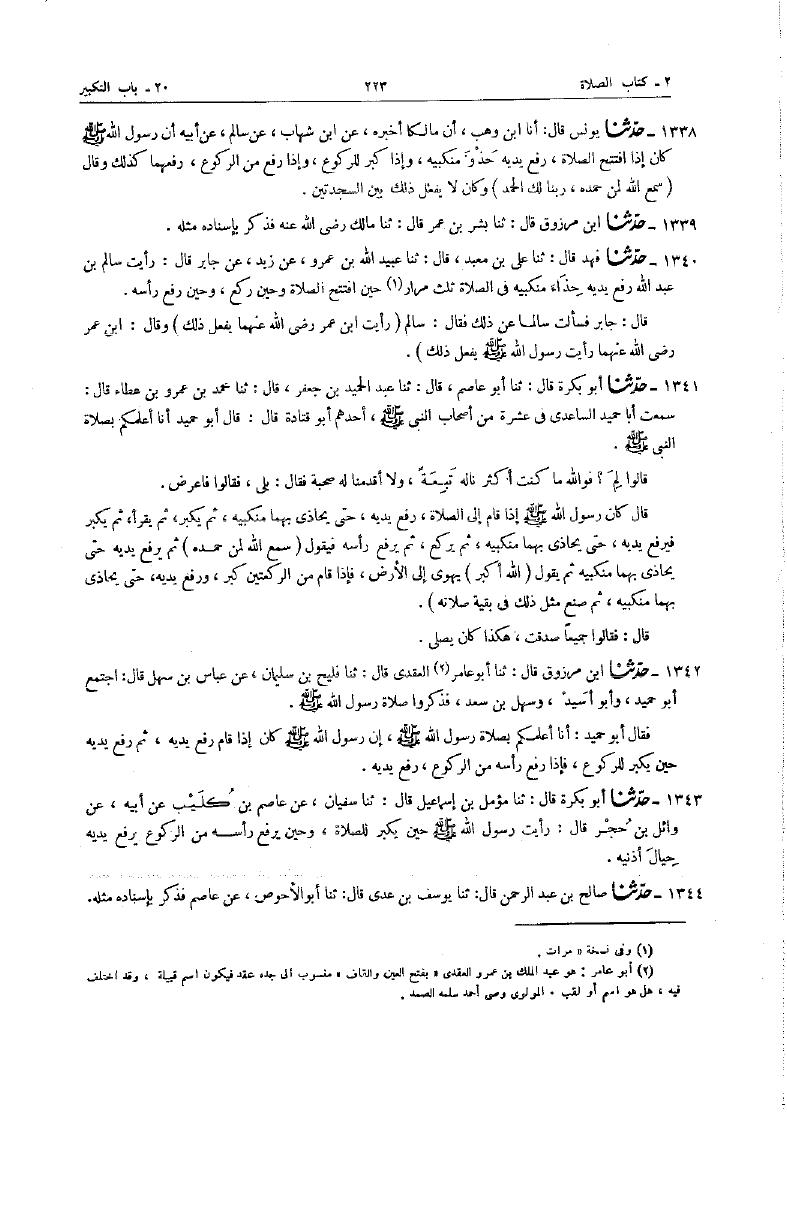 ٢ - كتاب الصلاة ٢٢٣ ٢٠ - باب التكبير
١٣٣٨ - حدثنا يونس قال: أنا ابن وهب ، أن مالكا أخبره ، عن ابن شهاب ، عن سالم ، عن أبيه أن رسول الله ﷺ
كان إذا افتتح الصلاة ، رفع يديه حَذْوَ منكبيه ، وإذا كبر للركوع ، وإذا رفع من الركوع ، رفعهما كذلك وقال
( سمع الله لمن حمده ، ربنا لك الحمد ) وكان لا يفعل ذلك بين السجدتين .
١٣٣٩ - حدثنا ابن مرزوق قال : ثنا بشر بن عمر قال : ثنا مالك رضى الله عنه فذكر بإسناده مثله .
١٣٤٠ - حدثنا فهد قال : ثنا على بن معبد ، قال : ثنا عبيد الله بن عمرو ، عن زيد ، عن جابر قال : رأيت سالم بن
عبد الله رفع يديه حِذَاءَ منكبيه فى الصلاة ثلث مرار(١) حين افتتح الصلاة وحين ركع ، وحين رفع رأسه .
قال : جابر فسألت سالما عن ذلك فقال : سالم ( رأيت ابن عمر رضى الله عنهما يفعل ذلك ) وقال : ابن عمر
رضى الله عنهما رأيت رسول الله ﷺ يفعل ذلك ) .
١٣٤١ - حدثنا أبو بكرة قال : ثنا أبو عاصم ، قال : ثنا عبد الحميد بن جعفر ، قال : ثنا محمد بن عمرو بن عطاء قال :
سمعت أبا حميد الساعدى فى عشرة من أصحاب النبى ﷺ ، أحدهم أبو قتادة قال : قال أبو حميد أنا أعلمكم بصلاة
النبى ﷺ .
قالوا لِمَ ؟ فوالله ما كنت أكثر ناله تَبِعَةً ، ولا أقدمنا له صحبة فقال : بلى ، فقالوا فاعرض .
قال كان رسول الله ﷺ إذا قام إلى الصلاة ، رفع يديه ، حتى يحاذى بهما منكبيه ، ثم يكبر، ثم يقرأ، ثم يكبر
فيرفع يديه ، حتى يحاذى بهما منكبيه ، ثم يركع ، ثم يرفع رأسه فيقول ( سمع الله لمن حمده ) ثم يرفع يديه حتى
يحاذى بهما منكبيه ثم يقول ( الله أكبر ) يهوى إلى الأرض ، فإذا قام من الركعتين كبر ، ورفع يديه، حتى يحاذى
بهما منكبيه ، ثم صنع مثل ذلك فى بقية صلاته ) .
قال : فقالوا جميعاً صدقت ، هكذا كان يصلى .
١٣٤٢ - حدثنا ابن مرزوق قال : ثنا أبو عامر(٢) العقدى قال : ثنا فليح بن سليمان ، عن عباس بن سهل قال: اجتمع
أبو حميد ، وأبو أسيد ، وسهل بن سعد ، فذكروا صلاة رسول الله ﷺ .
فقال أبو حميد : أنا أعلمكم بصلاة رسول الله ﷺ ، إن رسول الله ﷺ كان إذا قام رفع يديه ، ثم رفع يديه
حين يكبر للركوع ، فإذا رفع رأسه من الركوع ، رفع يديه .
١٣٤٣ - حدثنا أبو بكرة قال : ثنا مؤمل بن إسماعيل قال : ثنا سفيان ، عن عاصم بن كُلَيْب عن أبيه ، عن
وائل بن حُجْر قال : رأيت رسول الله ﷺ حين يكبر للصلاة ، وحين يرفع رأسه من الركوع يرفع يديه
حِيالَ أذنيه .
١٣٤٤ - حدثنا صالح بن عبد الرحمن قال: ثنا يوسف بن عدى قال: ثنا أبو الأحوص ، عن عاصم فذكر بإسناده مثله.
(١) وفى نسخة « مرات .
(٢) أبو عامر : هو عبد الملك بن عمرو العقدى « بفتح العين والقاف » منسوب الى جده عقد فيكون اسم قبيلة ، وقد اختلف
فيه ، هل هو اسم أو لقب • المولوى وصى أحمد سلمه الصمد .